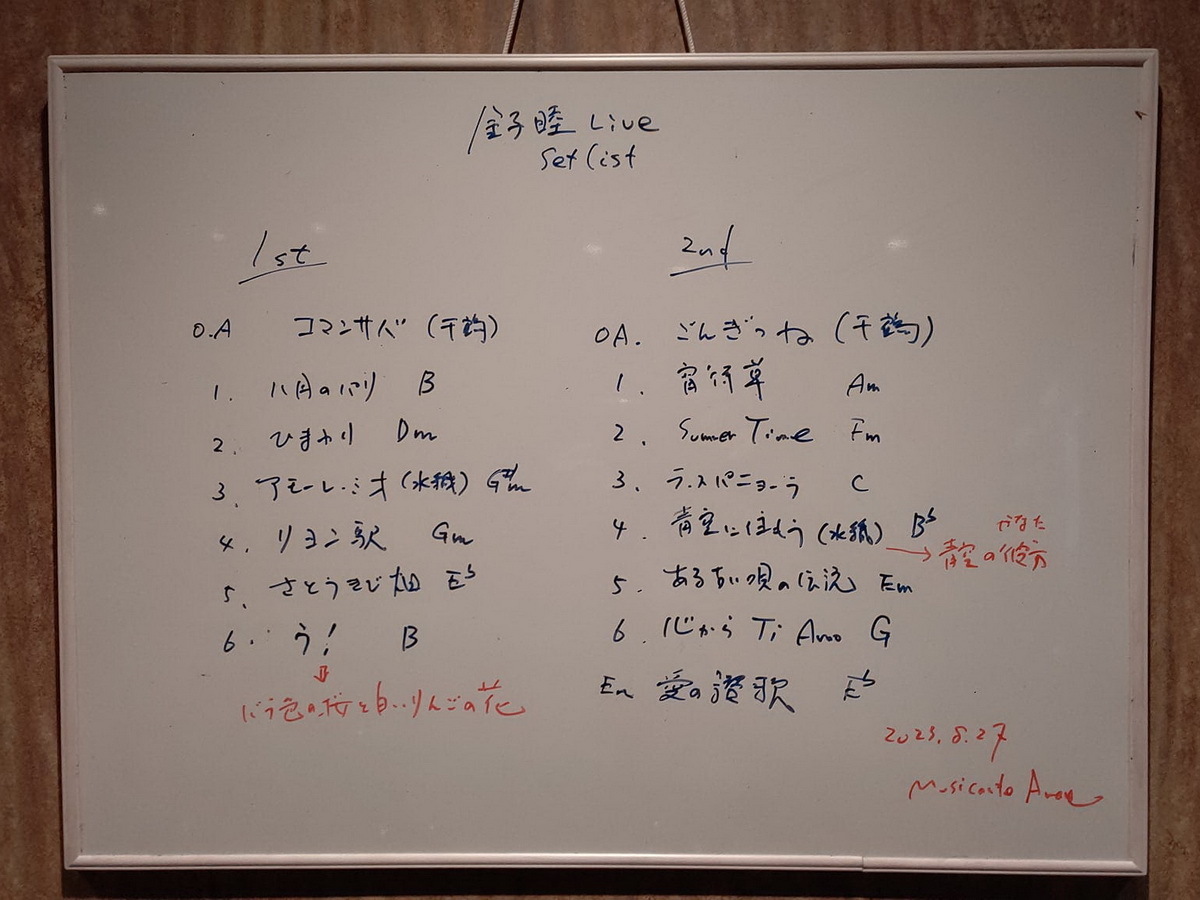 金子睦 Live
Set List
1st
O.A コマンサバ (千鶴)
1. 八月の
B
2. ひまわり Dm
3. アモーレ・ミオ (水織) G#m
4. リヨン駅 Gm
5. さとうきび畑 E♭
6. う! B
ばら色の桜と白いりんごの花
2nd
OA. ごんぎつね (千鶴)
1. 宵待草 Am
2. Summer Time Fm
3. ラ・スパニョーラ C
4. 青空に住もう (水織) B♭
かなた
→ 青空の彼方
5. ある古い唄の伝説 Em
6. 心から Ti Amo G
En 愛の讃歌 E♭
2023.8.27